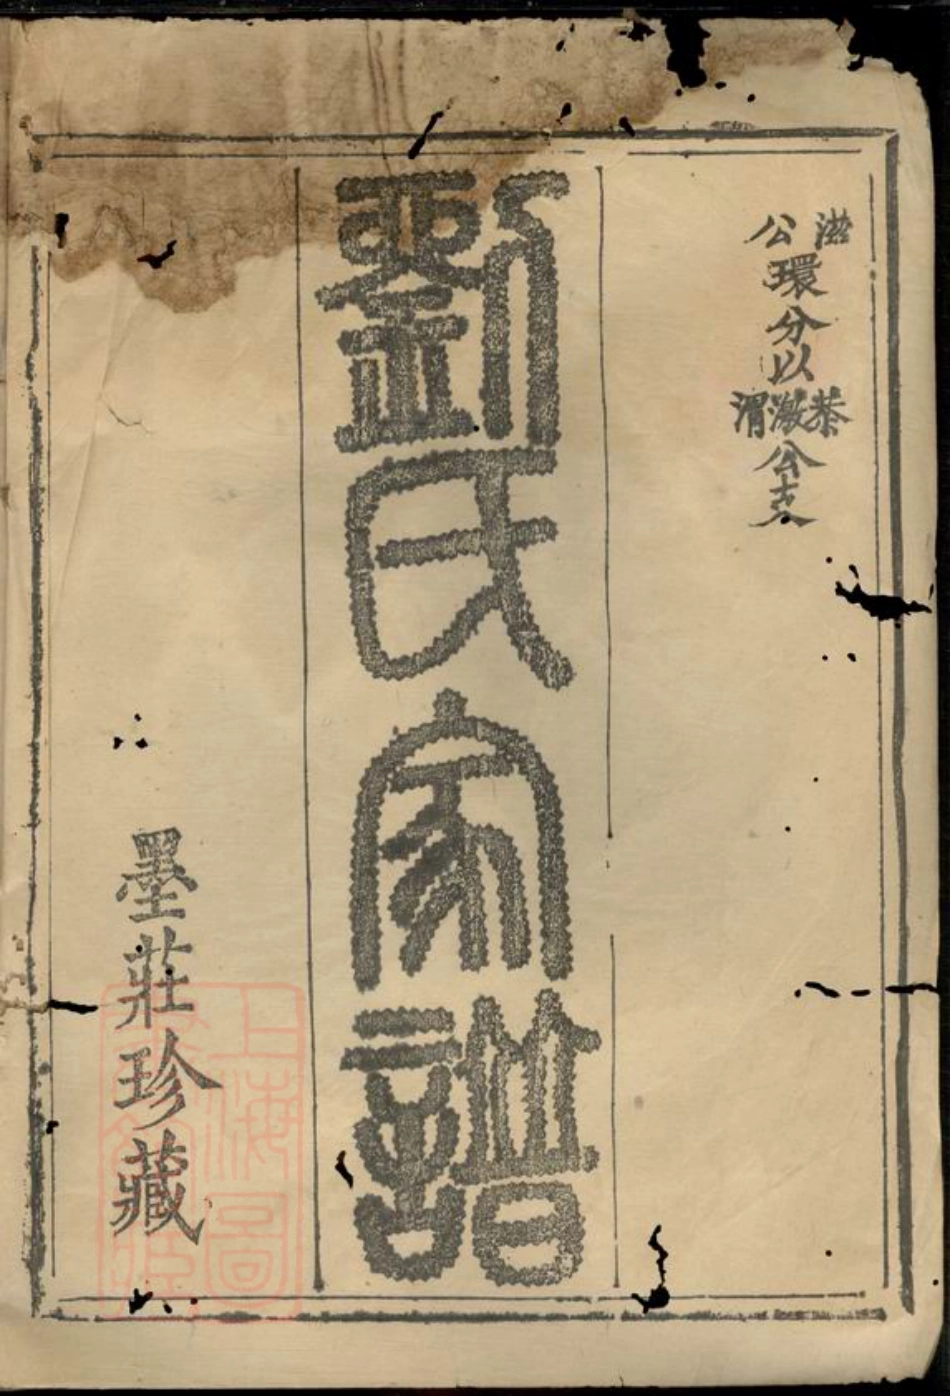 滋公環分以恭澂渭公支
劉氏家譜
墨莊珍藏
上海圖